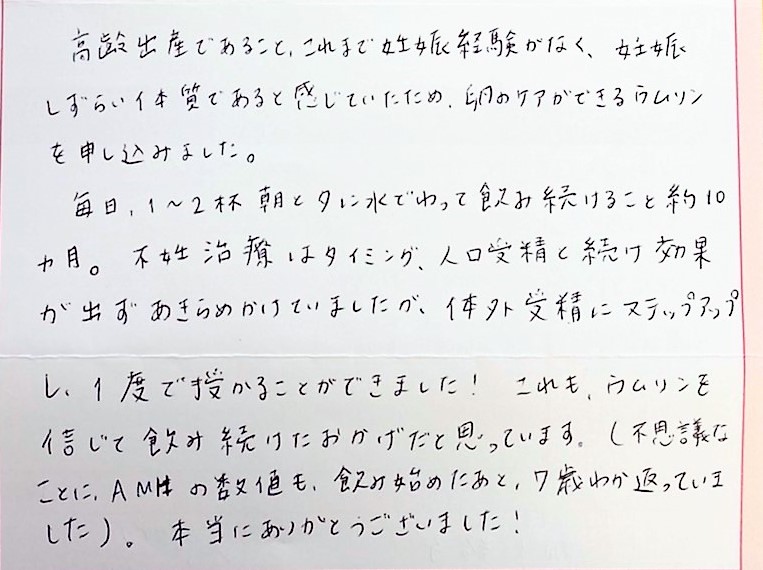 高齢出産であること、これまで妊娠経験がなく、妊娠
しずらい体質であると感じていたため、卵のケアができるウムリン
を申し込みました。
毎日、1〜2杯 朝と夕に水でわって飲み続けること約10
ヵ月。不妊治療はタイミング、人口受精と続け効果
が出ずあきらめかけていましたが、体外受精にステップアップ
し、1度で授かることができました! これも、ウムリンを
信じて飲み続けたおかげだと思っています。(不思議な
ことに、AMHの数値も、飲み始めたあと、7歳わか返っていま
した)。本当にありがとうございました!